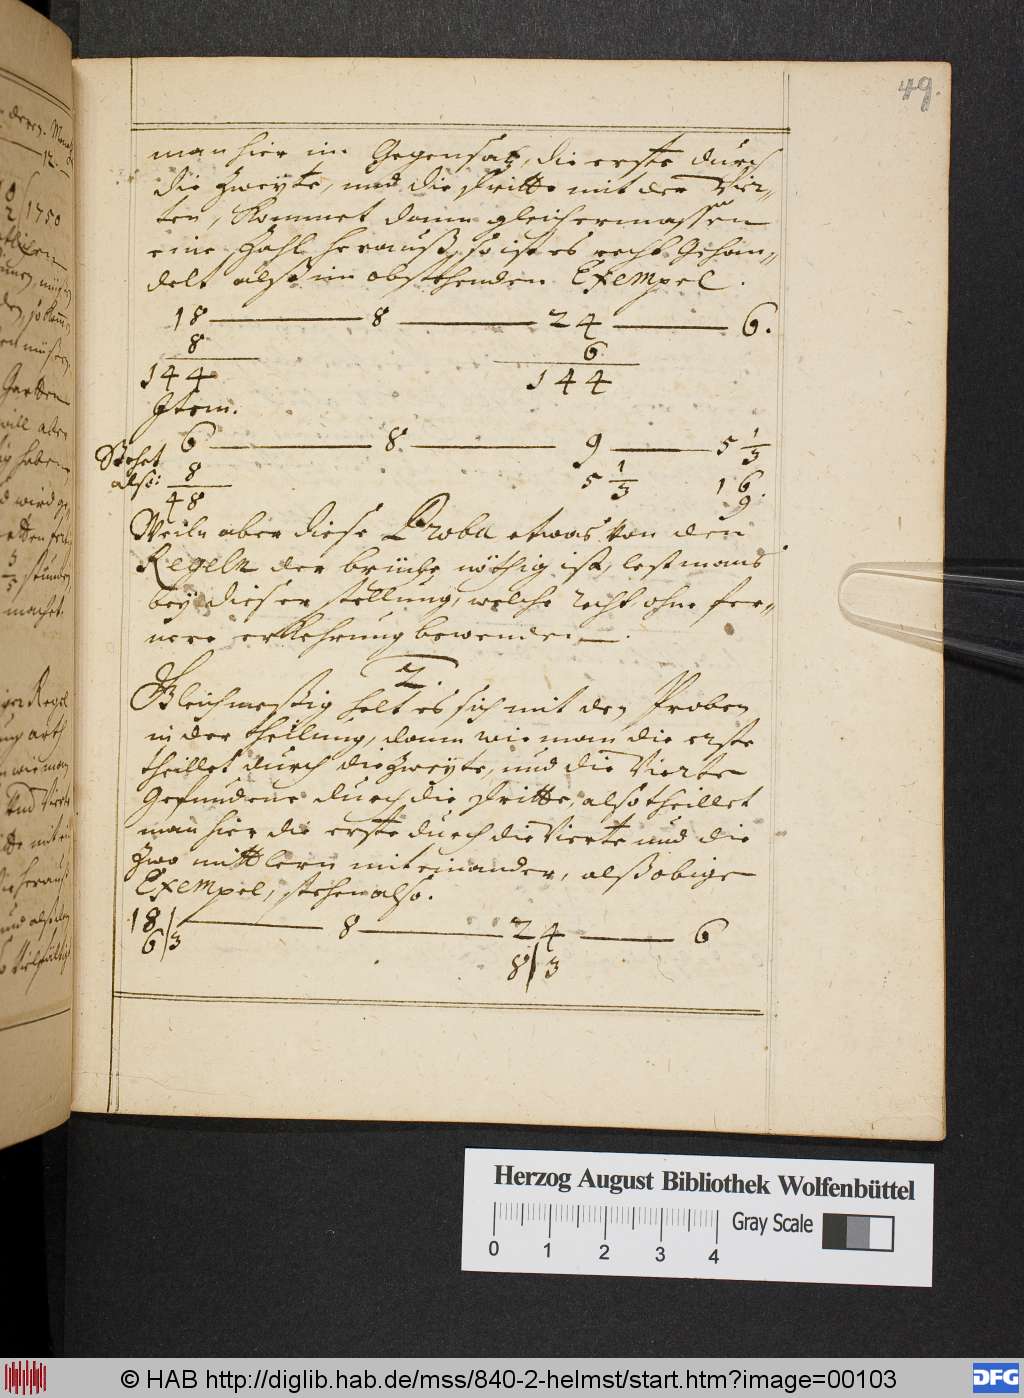 49.
man hier im Gegensatz, die erste durch
die Zweyte, und die Dritte mit der Vier„
ten, kommet dann gleichermassen
eine Zahl herauß, so ist es recht Gehan„
delt alß im obstehenden Exempel.
18 — 8 — 24 — 6.
8 6
144 144
Item.
6 — 8 — 9 — 5 1/3
Stehet
also: 8 5 1/3 16.
48 9
Weiln aber diese Proba etwas Von den
Regeln der brüche nöthig ist, lest mans
bey dieser stellung, welche recht, ohne fer„
nere erklehrung bewenden.
2.
Gleichmeßig helt es sich mit den Proben
in der theilung, dann wie man die erste
theillet durch die Zweyte, und die Vierte
Gefundene durch die Dritte, also theillet
man hier die erste durch die Vierte und die
Zwo mittlern miteinander, alß obige
Exempel, stehen also.
18 — 8 — 24 — 6
6 | 3 8 | 3
Herzog August Bibliothek Wolfenbüttel
Gray Scale
0 1 2 3 4
© HAB http://diglib.hab.de/mss/840-2-helmst/start.htm?image=00103
DFG